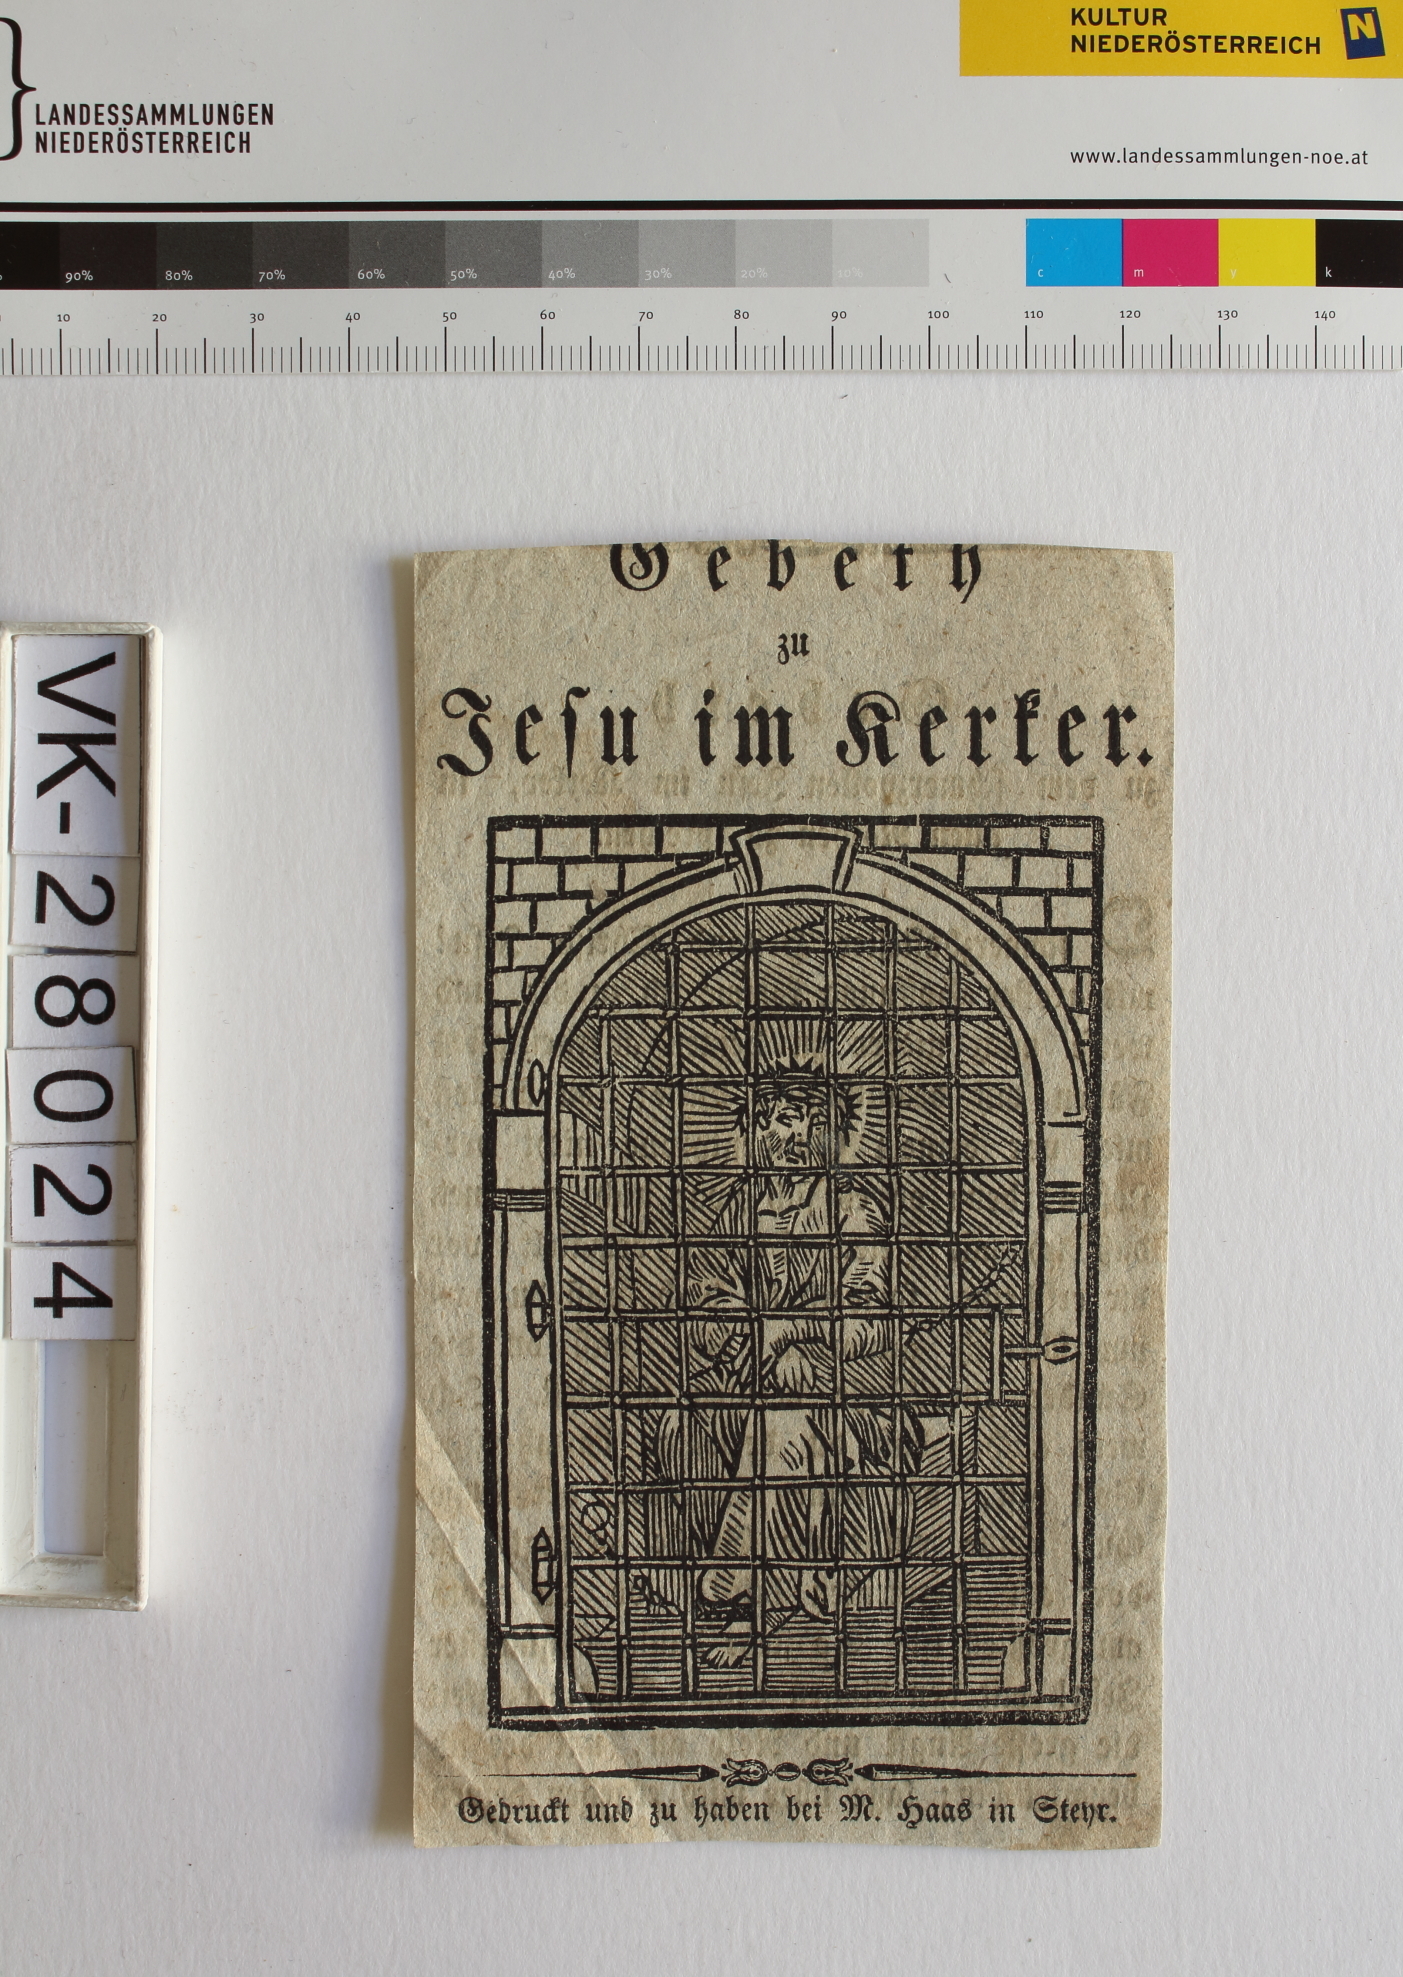 KULTUR
NIEDERÖSTERREICH
N
LANDESSAMMLUNGEN
NIEDERÖSTERREICH
www.landessammlungen-noe.at
90% 80% 70% 60% 50% 40% 30% 20% 10% c m y k
10 20 30 40 50 60 70 80 90 100 110 120 130 140
VK-28024
Gebeth
zu
Jesu im Kerker.
Gedruckt und zu haben bei M. Haas in Steyr.